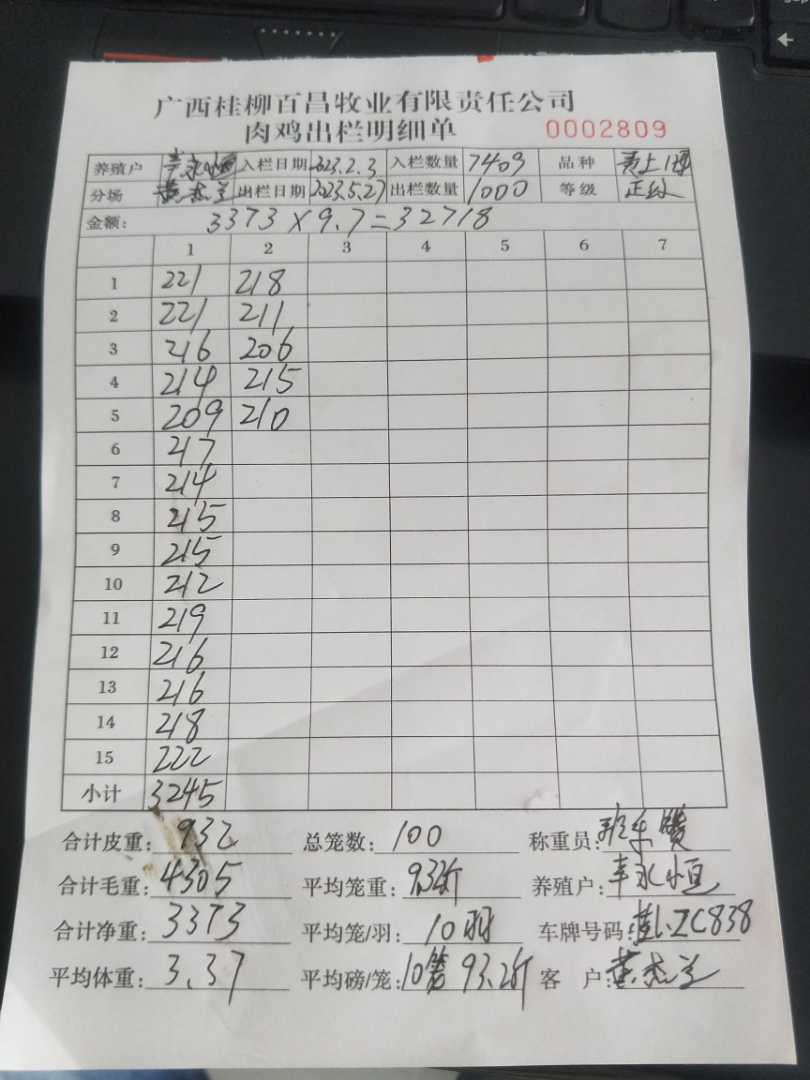 广西桂柳百昌牧业有限责任公司
肉鸡出栏明细单 0002809
养殖户 韦永恒 入栏日期 2023.2.3 入栏数量 7409 品种
分场 黄杰兰 出栏日期 2023.5.27 出栏数量 1000 等级
金额: 3373×9.7=32718
1 2 3 4 5 6 7
1 221 218
2 221 211
3 216 206
4 214 215
5 209 210
6 217
7 214
8 215
9 215
10 212
11 219
12 216
13 216
14 218
15 222
小计 3245
合计皮重: 932 总笼数: 100 称重员:
合计毛重: 4305 平均笼重: 9.32斤 养殖户: 韦永恒
合计净重: 3373 平均笼/羽: 10羽 车牌号码: 桂L.ZC838
平均体重: 3.37 平均磅/笼: 10笼 93.2斤 客 户: 黄杰兰